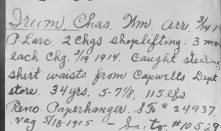 Irum, Chas. Wm arr. 3/14
P. Larc. 2 chgs shoplifting. 3 mo
each chg. 7/19 1914. Caught stealing
shirt waists from Capwells Dept
store. 34 yrs. 5-7/8, 115 lbs
Reno. Paperhanger. # 24437
Vag 5/18 1915 - to # 10529